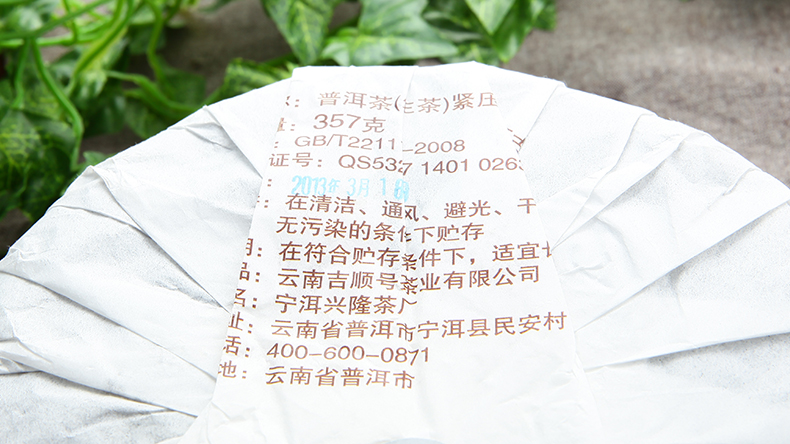 ：普洱茶(生茶)紧压
：357克
：GB/T2211-2008
证号：QS537 1401 026
：2013年3月1
：在清洁、通风、避光、干
无污染的条件下贮存
：在符合贮存条件下，适宜
品：云南吉顺号茶业有限公司
名：宁洱兴隆茶厂
址：云南省普洱市宁洱县民安村
话：400-600-0871
地：云南省普洱市